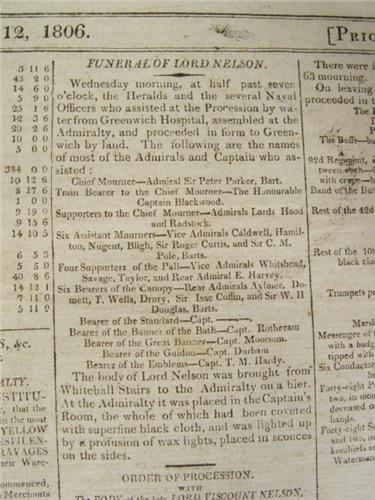 12, 1806.
[PRIC
5 11 6
43 2 0
14 6 0
5 9 0
25 1 6
12 3 6
20 2 6
10 0 0
5 0 0
384 0 0
10 12 6
8 17 6
1 0 0
9 19 0
9 15 6
14 10 5
6 5 3
5 5 0
40 8 6
14 12 1
7 11 0
5 11 9
S, &c.
ALTY.
STITU-
, that the
in the most
YELLOW
ESTILEN-
RAVAGES
heir Ware-
ommenced,
n Merchants
FUNERAL OF LORD NELSON.
Wednesday morning, at half past seven
o'clock, the Heralds and the several Naval
Officers who assisted at the Procession by wa-
ter from Greenwich Hospital, assembled at the
Admiralty, and proceeded in form to Green-
wich by land. The following are the names
of most of the Admirals and Captain who as-
sisted :
Chief Mourner—Admiral Sir Peter Parker, Bart.
Train Bearer to the Chief Mourner—The Honourable
Captain Blackwood.
Supporters to the Chief Mourner—Admirals Lords Hood
and Radstock.
Six Assistant Mourners—Vice Admirals Caldwell, Hamil-
ton, Nugent, Bligh, Sir Roger Curtis, and Sir C. M.
Pole, Barts.
Four Supporters of the Pall—Vice Admirals Whitshead,
Savage, Taylor, and Rear Admiral E. Harvey.
Six Bearers of the Canopy—Rear Admirals Aylmer, Do-
mett, T. Wells, Drory, Sir Isac Coffin, and Sir W. H
Douglas, Barts.
Bearer of the Standard—Capt. ———.
Bearer of the Banner of the Bath—Capt. Rotheram
Bearer of the Great Banner—Capt. Moorsom.
Bearer of the Guidon—Capt. Durham
Bearer of the Emblems—Capt. T. M. Hardy.
The body of Lord Nelson was brought from
Whitehall Stairs to the Admiralty on a bier.
At the Admiralty it was placed in the Captain's
Room, the whole of which had been covered
with superfine black cloth, and was lighted up
by a profusion of wax lights, placed in sconces
on the sides.
ORDER OF PROCESSION.
WITH
The BODY of the late LORD VISCOUNT NELSON,
There were i
63 mourning.
On leaving
proceeded in t
The B
The Buffs—ba
92d Regiment,
tween each
with crape—b
Band of the Bu
Rest of the 42d
Rest of the 10
black clo
Trumpets p
Marsh
Messenger of
with a badg
tipped with
Six Conducto
be
Forty-eight P
two, in mou
deceased o
hands.
Forty-eight Se
and two, in
kerchiefs a
Watermen